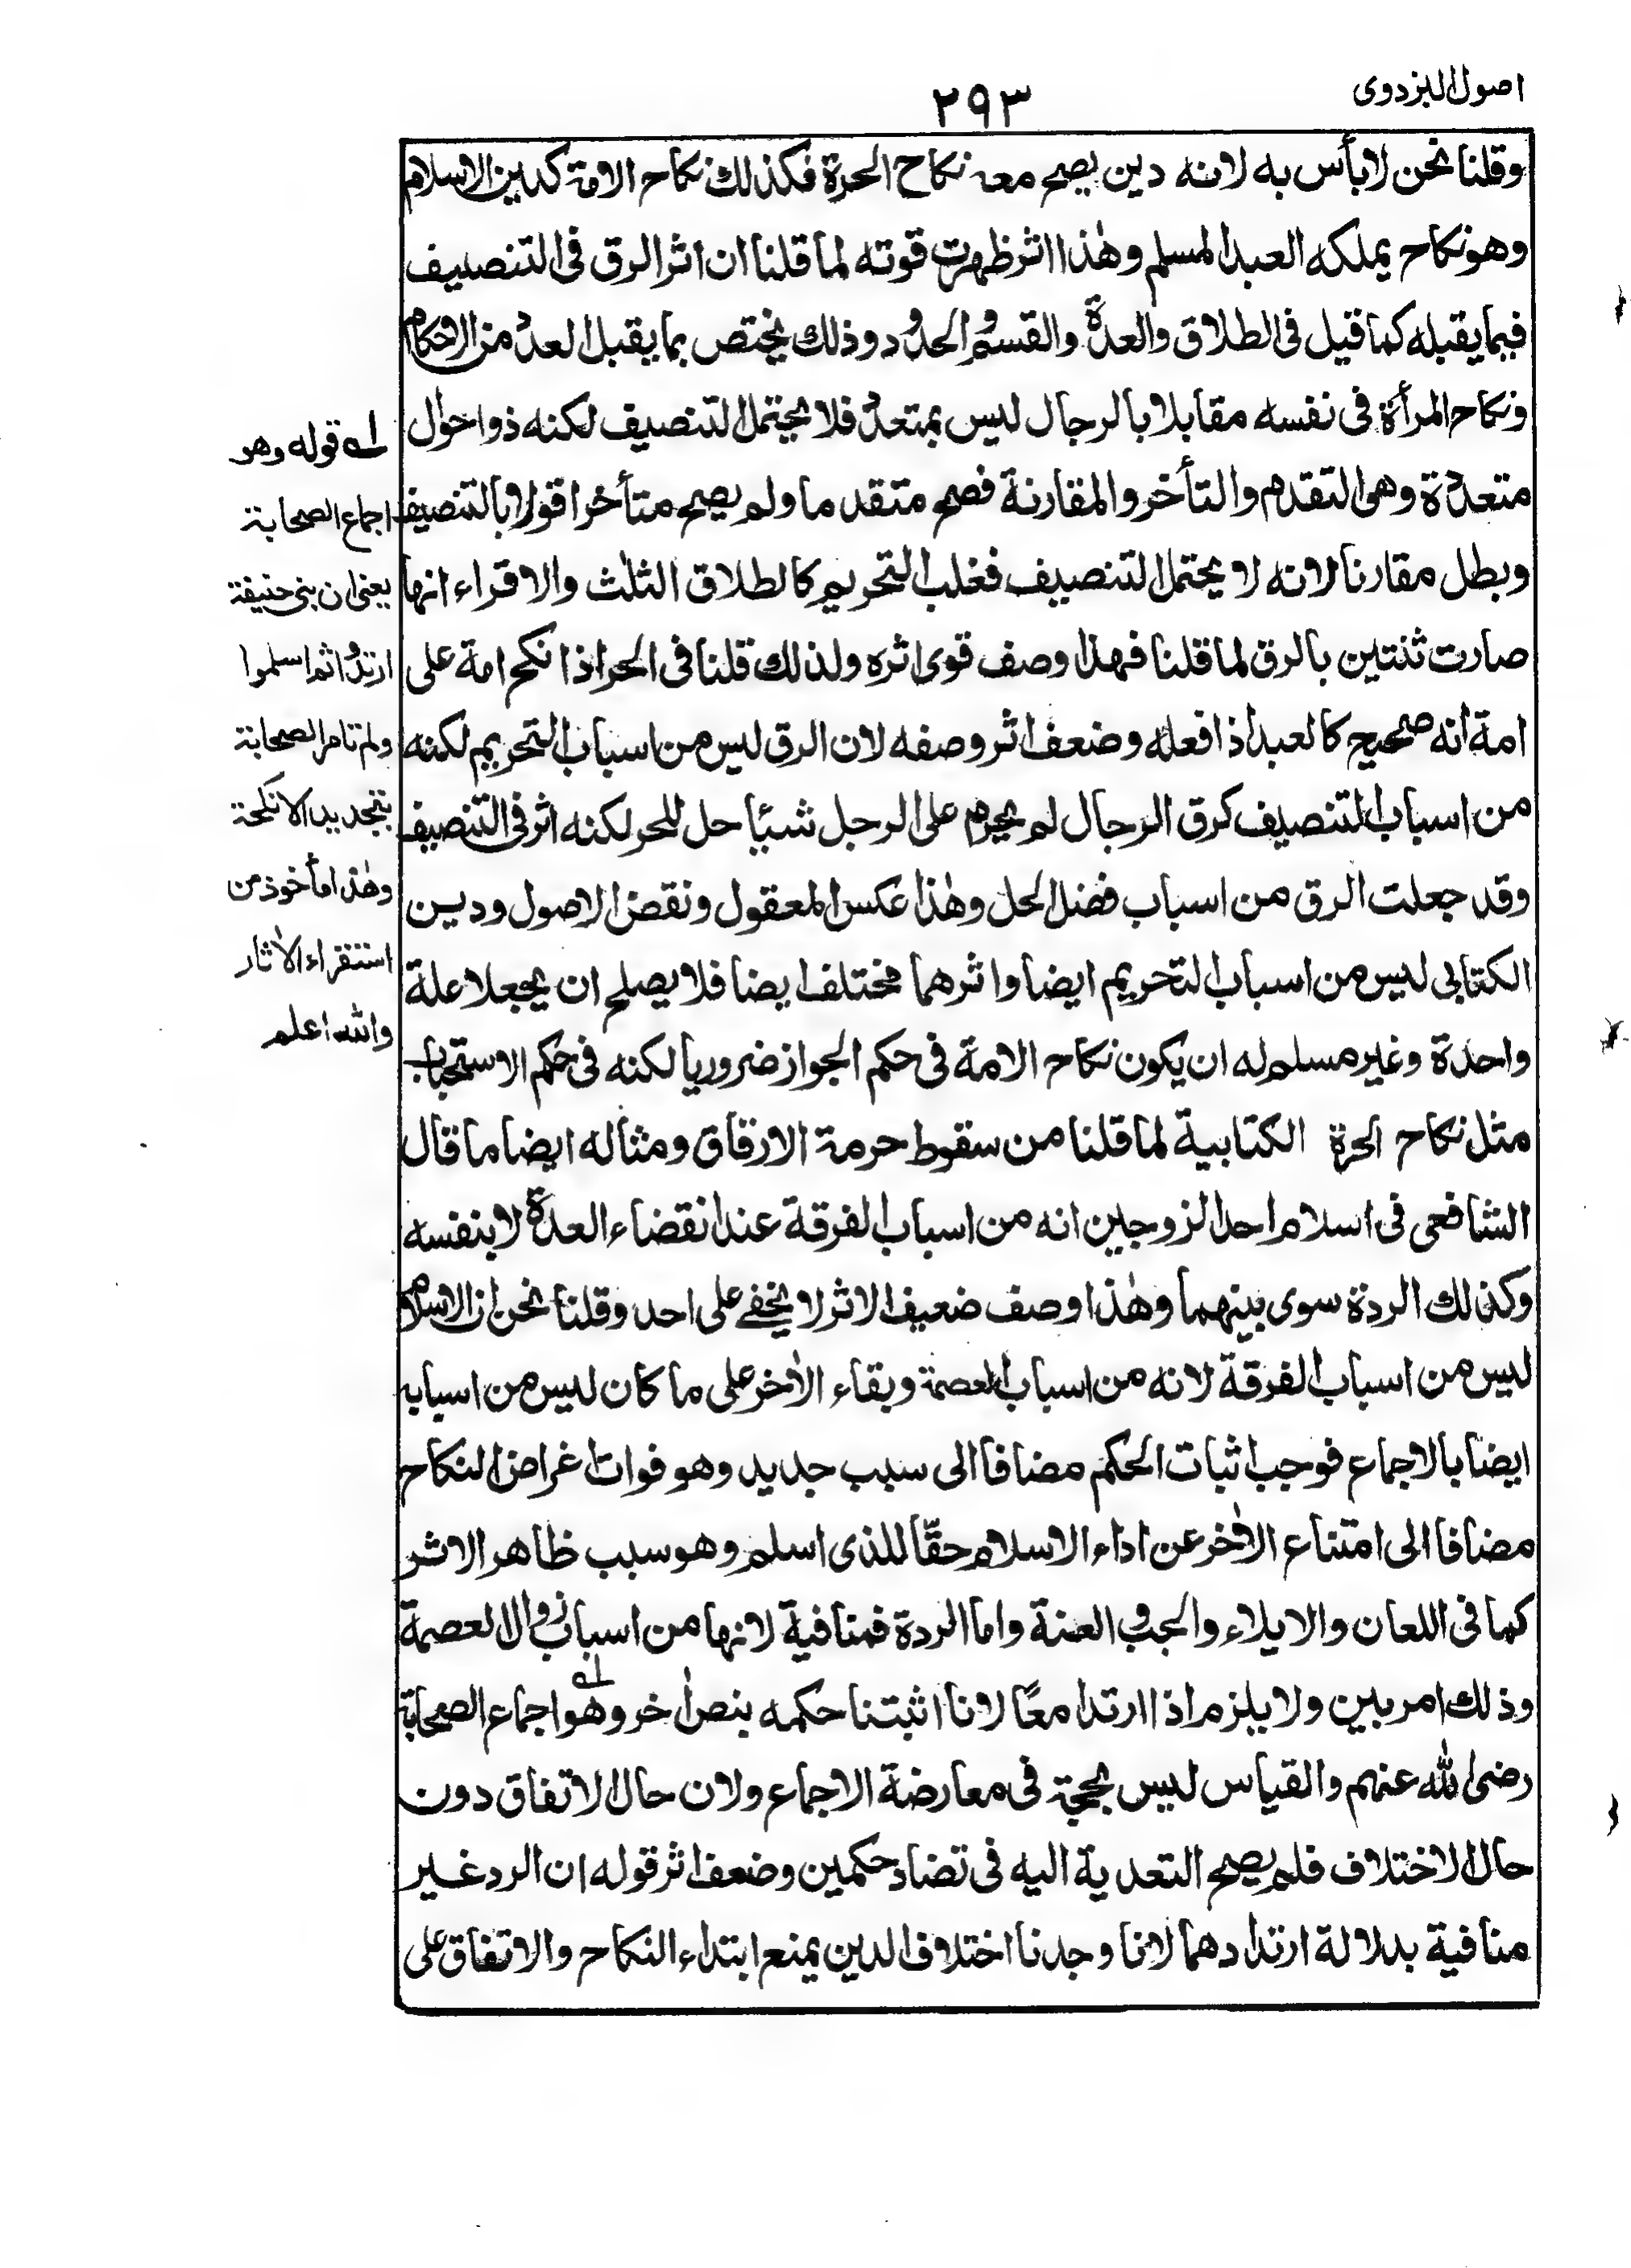 اصول البزدوی
۲۹۳
وقلنا نحن لا بأس به لانه دين يصح معه نكاح الحرة فكذلك نكاح الامة كدين الاسلام
وهو نكاح يملكه العبد المسلم وهٰذا اثر ظهرت قوته لما قلنا ان اثر الرق فى التنصيف
فيما يقبله كما قيل فى الطلاق والعدة والقسم والحدود وذلك يختص بما يقبل العدد من الاحكام
ونكاح المرأة فى نفسه مقابلا بالرجال ليس بمتعدد فلا يحتمل التنصيف لكنه ذو احوال
متعددة وهى التقدم والتأخر والمقارنة فصح متقدما ولم يصح متأخرا قولا بالتنصيف
وبطل مقارنا لانه لا يحتمل التنصيف فغلب التحريم كالطلاق الثلث والاقراء انها
صارت ثنتين بالرق لما قلنا فهذا وصف قوى اثره ولذلك قلنا فى الحر اذا نكح امة على
امة انه صحيح كالعبد اذا فعله وضعف اثر وصفه لان الرق ليس من اسباب التحريم لكنه
من اسباب التنصيف كرق الرجال لم يحرم على الرجل شيئا حل للحر لكنه اثر فى التنصيف
وقد جعلت الرق من اسباب فضل الحل وهٰذا عكس المعقول ونقض الاصول ودين
الكتابى ليس من اسباب التحريم ايضا واثرهما مختلف ايضا فلا يصلح ان يجعلا علة
واحدة وغير مسلم له ان يكون نكاح الامة فى حكم الجواز ضروريا لكنه فى حكم الاستحباب
مثل نكاح الحرة الكتابية لما قلنا من سقوط حرمة الارقاق ومثاله ايضا ما قال
الشافعى فى اسلام احد الزوجين انه من اسباب الفرقة عند انقضاء العدة لا بنفسه
وكذلك الردة سوى بينهما وهٰذا وصف ضعيف الاثر لا يخفے على احد وقلنا نحن ان الاسلام
ليس من اسباب الفرقة لانه من اسباب العصمة وبقاء الاٰخر على ما كان ليس من اسبابه
ايضا بالاجماع فوجب اثبات الحكم مضافا الى سبب جديد وهو فوات اغراض النكاح
مضافا الى امتناع الاٰخر عن اداء الاسلام حقّا للذى اسلم وهو سبب ظاهر الاثر
كما فى اللعان والايلاء والجب والعنة واما الردة فمنافية لانها من اسباب زوال العصمة
وذلك امر بين ولا يلزم اذا ارتدا معًا لانا اثبتنا حكمه بنص اٰخر وهو اجماع الصحابة
رضى الله عنهم والقياس ليس بحجة فى معارضة الاجماع ولان حال الاتفاق دون
حال الاختلاف فلم يصح التعدية اليه فى تضاد حكمين وضعف اثر قوله ان الرد غير
منافية بدلالة ارتدادهما لانا وجدنا اختلاف الدين يمنع ابتداء النكاح والاتفاق على
لے قوله وهو
اجماع الصحابة
يعنى ان بنى حنيفة
ارتدوا ثم اسلموا
ولم تامر الصحابة
بتجديد الانكحة
وهٰذا مأخوذ من
استقراء الاٰثار
والله اعلم